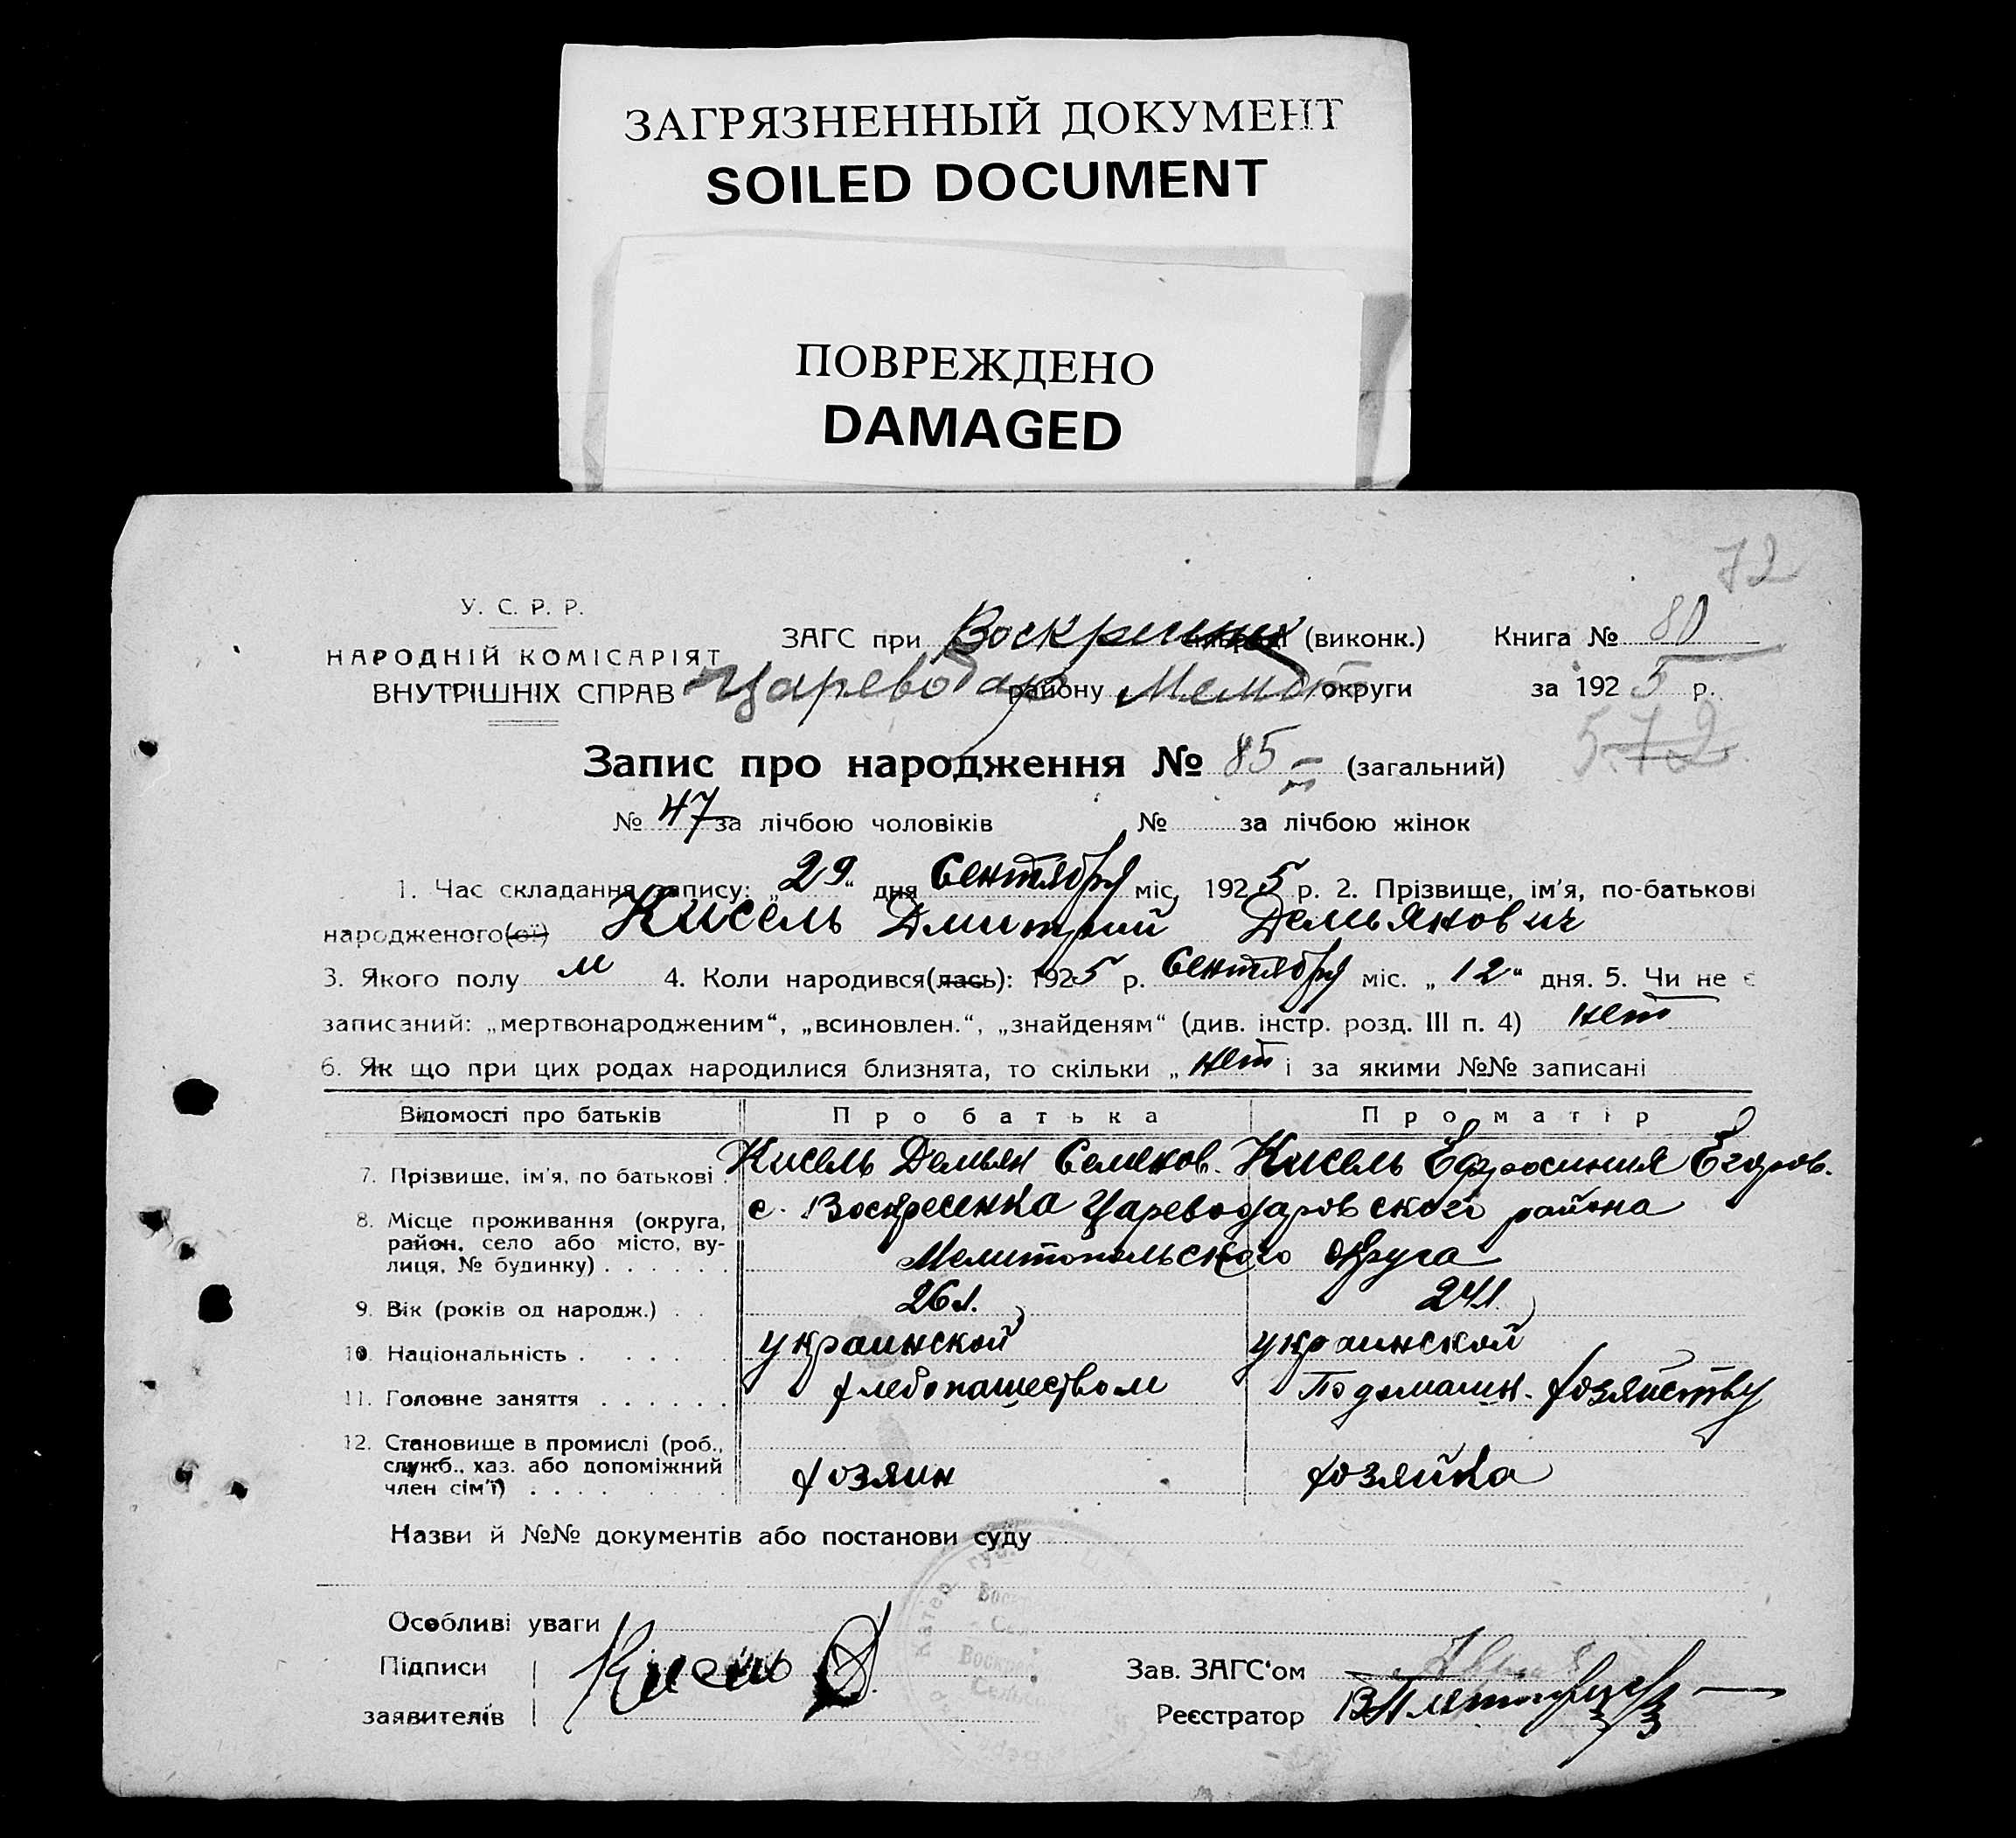 ЗАГРЯЗНЕННЫЙ ДОКУМЕНТ
SOILED DOCUMENT
ПОВРЕЖДЕНО
DAMAGED
72
У. С. Р. Р.
НАРОДНІЙ КОМІСАРІЯТ
ВНУТРІШНІХ СПРАВ
ЗАГС при (виконк.) Книга № 80
району Мелит округи за 1925 р.
572
Запис про народження № 85 (загальний)
№ 47 за лічбою чоловіків № за лічбою жінок
1. Час складання запису: „29“ дня Сентября міс. 1925 р. 2. Прізвище, ім'я, по-батькові
народженого(ої) Кисель Дмитрий Демьянович
3. Якого полу м 4. Коли народився(лась): 1925 р. Сентября міс. „12“ дня. 5. Чи не є
записаний: „мертвонародженим“, „всиновлен.“, „знайденям“ (див. інстр. розд. III п. 4) нет
6. Як що при цих родах народилися близнята, то скільки „нет і за якими №№ записані
Відомості про батьків Про батька Про матір
7. Прізвище, ім'я, по батькові . Кисель Демьян Семенов. Кисель Ефросиния Егоров.
8. Місце проживання (округа, район, село або місто, вулиця, № будинку) . . . . . . с. Воскресенка Цареводаровского района
Мелитопольского округа
9. Вік (років од народж.) . . 26 л. 24 л.
10. Національність . . . . . украинской украинской
11. Головне заняття . . . . . . хлебопашеством По домашн. хозяйству
12. Становище в промислі (роб., служб., хаз. або допоміжний член сім'ї) . . . . хозяин хозяйка
Назви й №№ документів або постанови суду
Особливі уваги
Підписи
заявителів
Кисель Д
Зав. ЗАГС'ом
Реєстратор